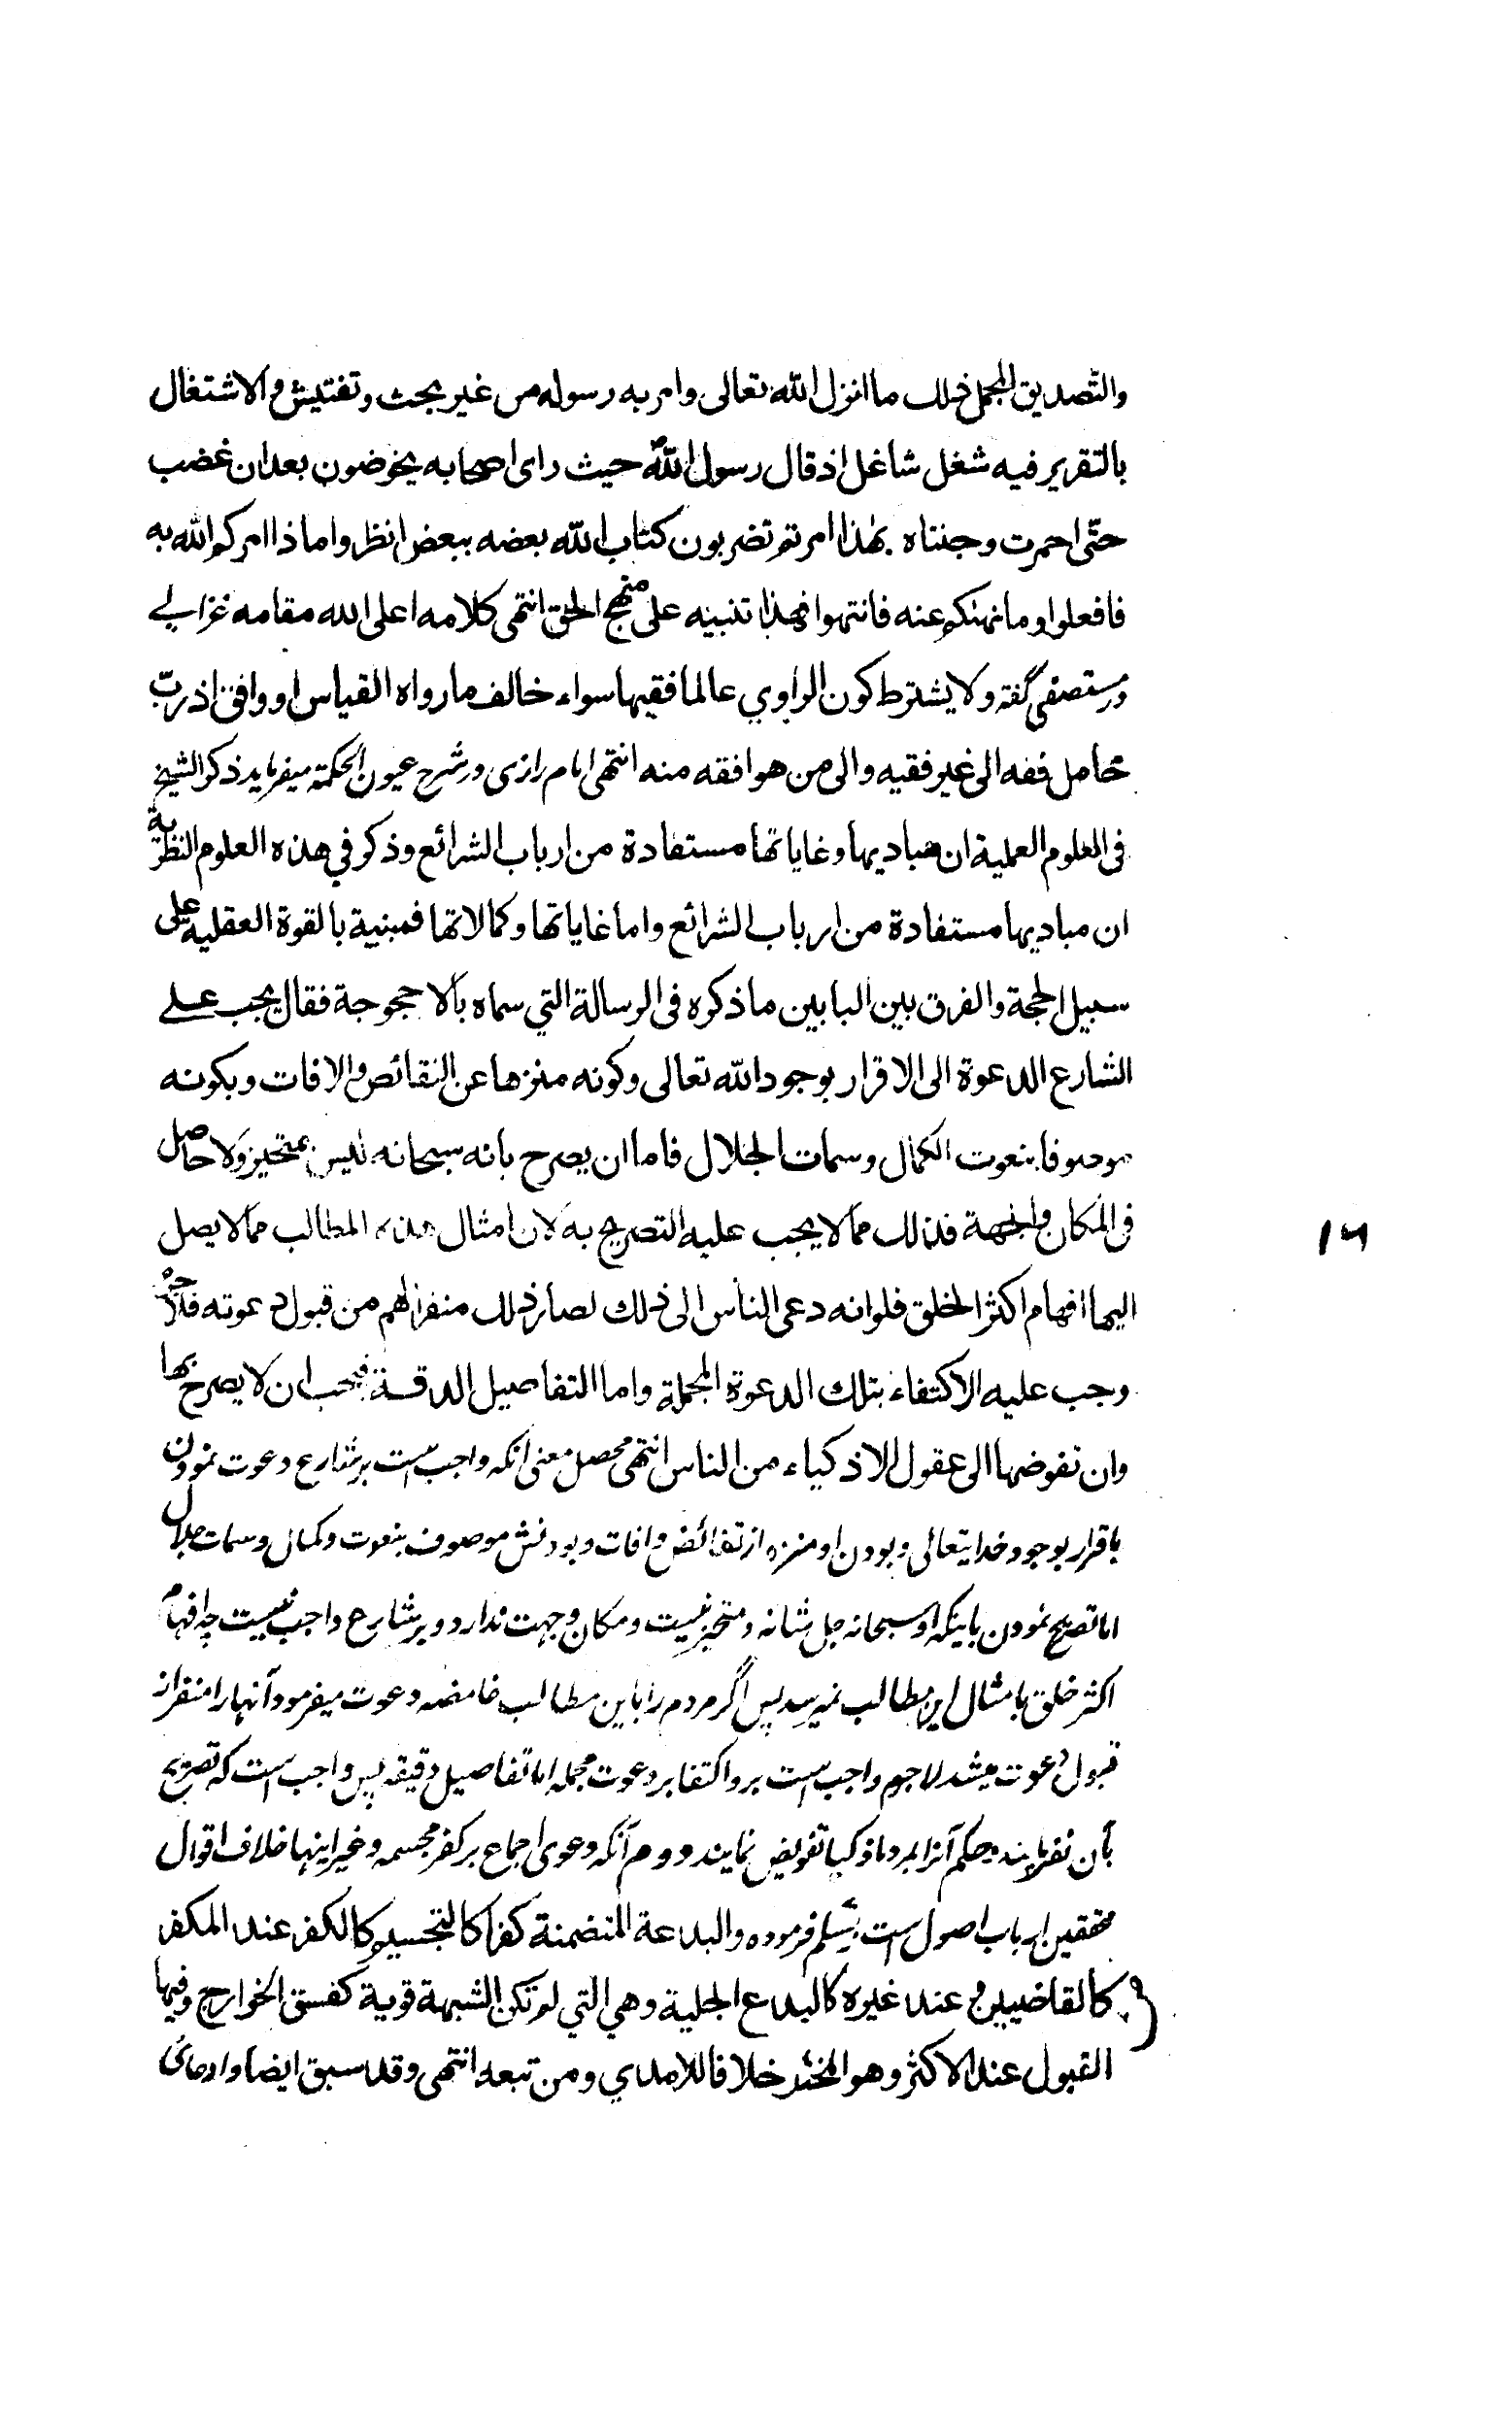 والتصديق المجمل فذلك ما انزل الله تعالى وامر به رسوله من غير بحث وتفتيش والاشتغال
بالتقرير فيه شغل شاغل اذ قال رسول الله ص حيث راى اصحابه يخوضون بعد ان غضب
حتّى احمرت وجنتاه بهذا امرتم تضربون كتاب الله بعضه ببعض انظروا ما ذا امركم الله به
فافعلوا وما نهنكم عنه فانتهوا فهذا تنبيه على منهج الحق انتهى كلامه اعلى الله مقامه غزالي
در مستصفى گفته ولا يشترط كون الراوي عالما فقيها سواء خالف ما رواه القياس او وافق اذ ربّ
حامل فقه الى غير فقيه والى من هو افقه منه انتهى امام رازى در شرح عيون الحكمة ميفرمايد ذكر الشيخ
فى العلوم العملية ان مباديها وغاياتها مستفادة من ارباب الشرائع وذكر في هذه العلوم النظرية
ان مباديها مستفادة من ارباب الشرائع واما غاياتها وكمالاتها فمبنية بالقوة العقلية على
سبيل الحجة والفرق بين البابين ما ذكره فى الرسالة التي سماه بالاحجوجة فقال يجب على
الشارع الدعوة الى الاقرار بوجود الله تعالى وكونه منزها عن النقائص والافات وبكونه
موصوفا بنعوت الكمال وسمات الجلال فاما ان يصرح بانه سبحانه ليس بمتحيز ولا حاصل
فى المكان والجهة فذلك مما لا يجب عليه التصريح به لان امثال هذه المطالب مما لا يصل
اليها افهام اكثر الخلق فلو انه دعى الناس الى ذلك لصار ذلك منفرا لهم من قبول دعوته فلا جرم
وجب عليه الاكتفاء بتلك الدعوة المجملة واما التفاصيل الدقة فيجب ان لا يصرح بها
وان تفوضها الى عقول الاذكياء من الناس انتهى محصل معنى آنكه واجب است بر شارع دعوت نمودن
باقرار بوجود خدايتعالى وبودن او منزه از نقائض وافات وبودنش موصوف بنعوت وكمال وسمات جلال
اما تصريح نمودن باينكه او سبحانه جل شانه و متحيز نيست و مكان وجهت ندارد و بر شارع واجب نيست چه افهام
اكثر خلق بامثال اين مطالب نميرسد پس اگر مردم را باين مطالب غامضه دعوت ميفرمود آنها را منفر از
قبول دعوت ميشد لا جرم واجب است برو اكتفا بر دعوت مجمله اما تفاصيل دقيقه پس واجب است كه تصريح
بآن نفرمايند حكم آنرا بردم اذكيا تفويض نمايند دووم آنكه دعوى اجماع بر كفر مجسمه وغير اينها خلاف اقوال
محققين ارباب اصول است مسلم فرموده والبدعة المتضمنة كفرا كالتجسيم كالكفر عند المكفر
كالقاضيين وعند غيره كالبدع الجلية وهي التي لم تكن الشبهة قوية كفسق الخوارج وفيها
القبول عند الاكثر وهو المختار خلافا للامدي ومن تبعه انتهى وقد سبق ايضا وادعائى
١٦